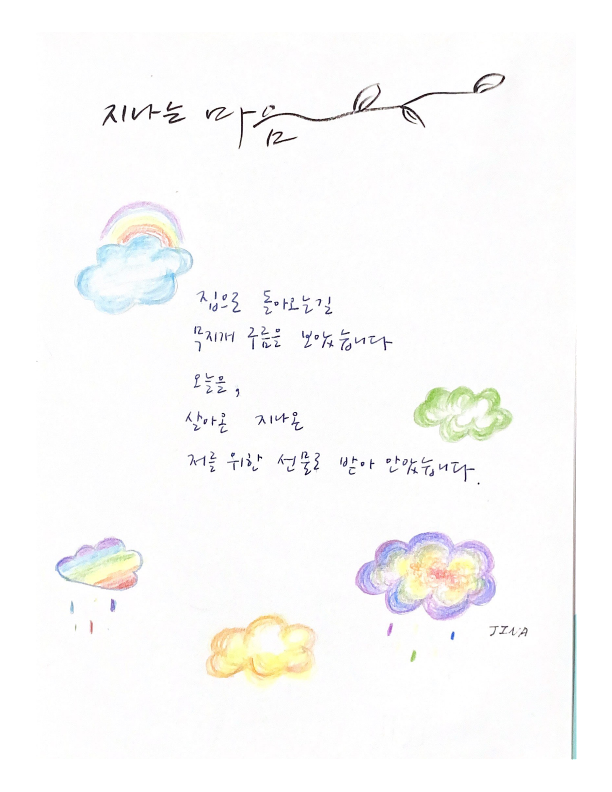 지나는 마음
집으로 돌아오는길
무지개 구름을 보았습니다
오늘을,
살아온 지나온
저를 위한 선물로 받아 안았습니다.
JINA